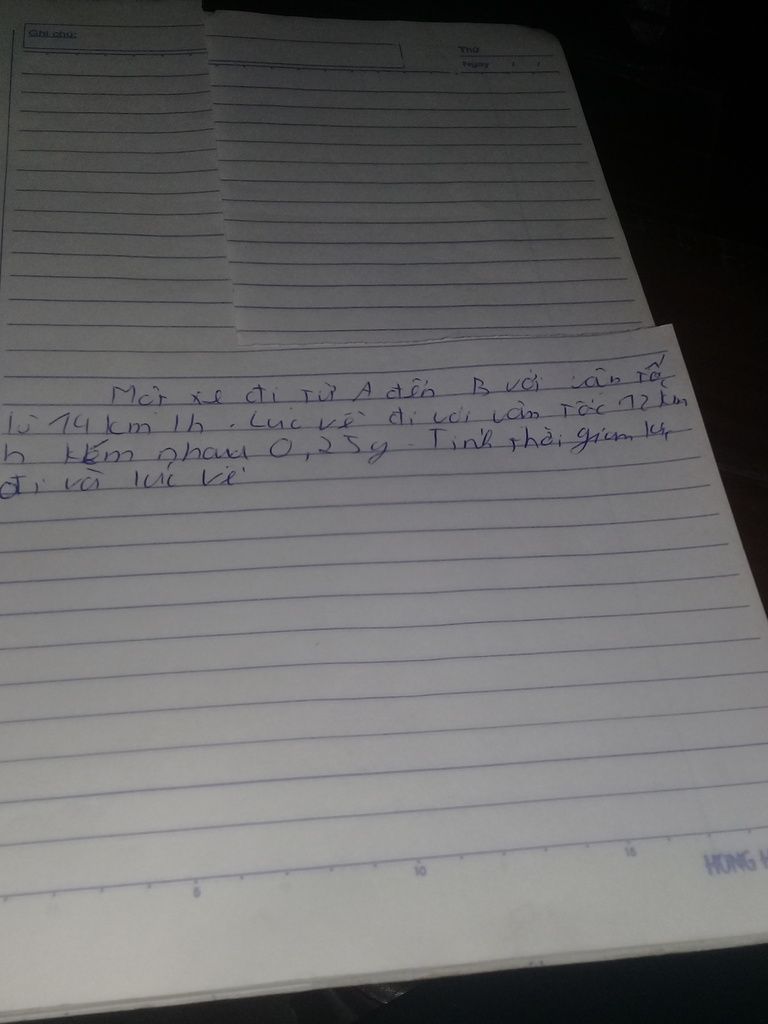 Ghi chú:
Thứ
Ngày / /
Một xe đi từ A đến B với vận tốc
là 14 km/h. Lúc về đi với vận tốc 12 km
h kém nhau 0,25g. Tính thời gian lúc
đi và lúc về
5 10 15
HONG H